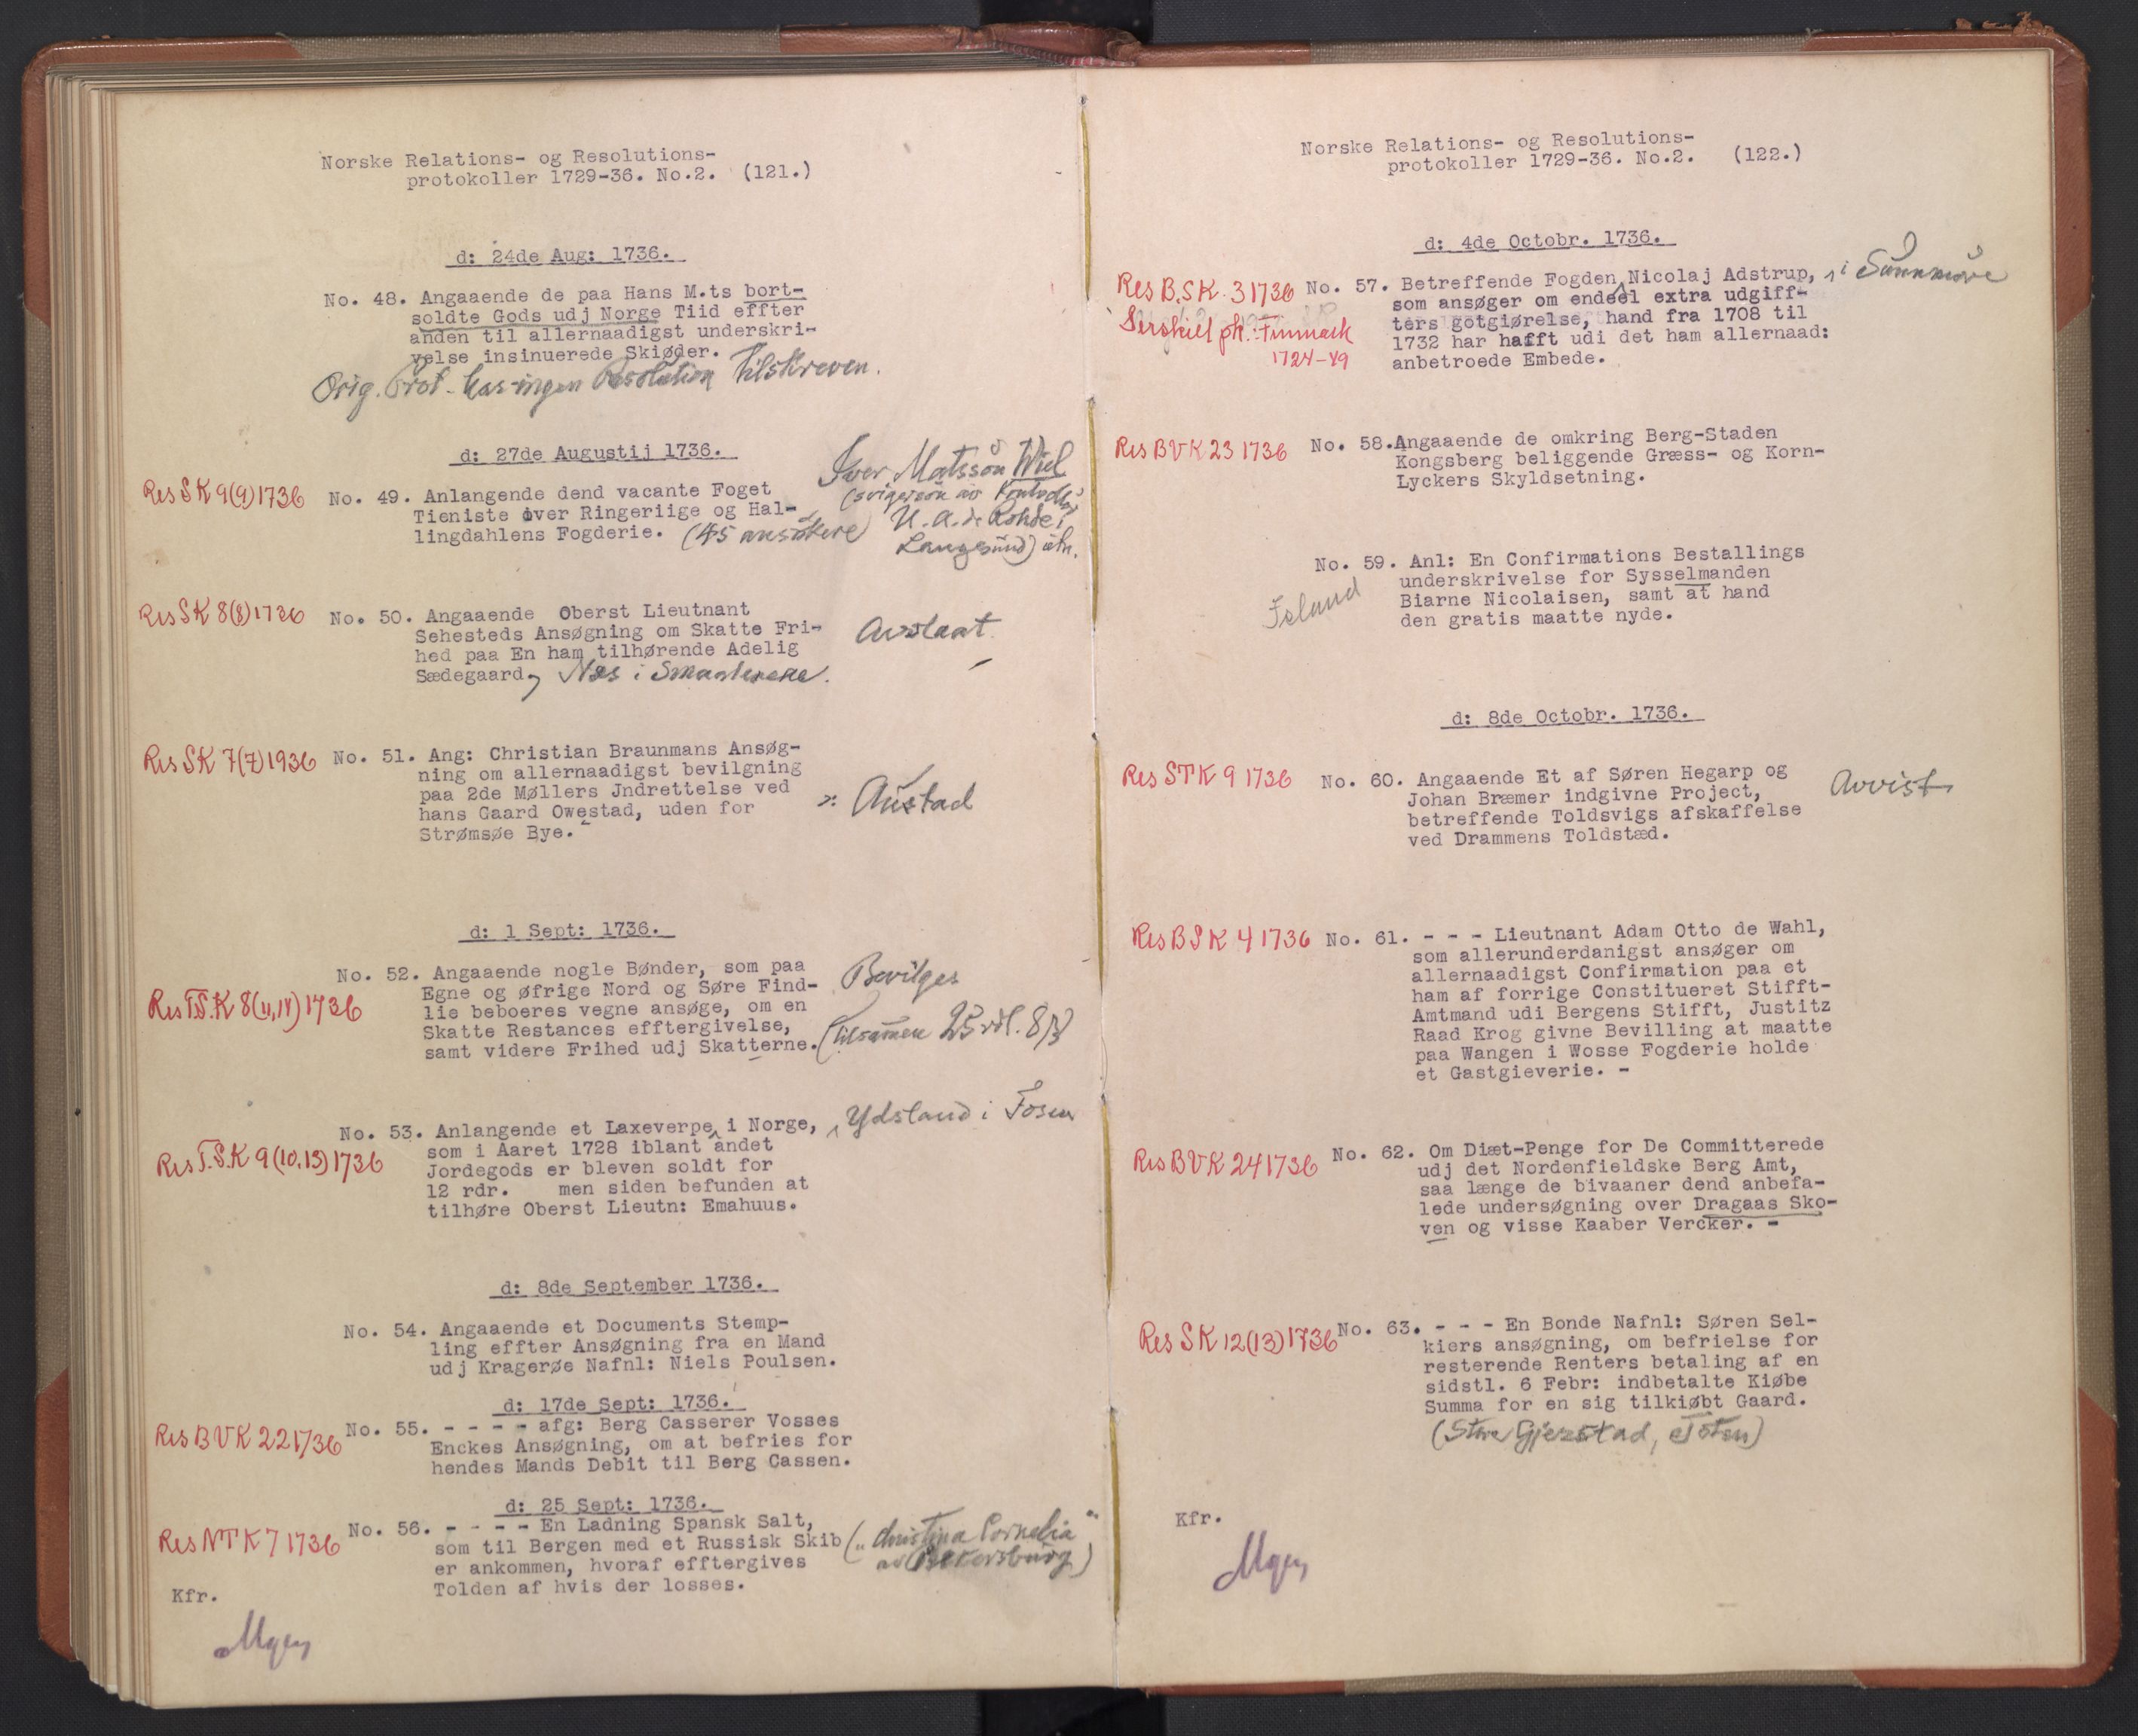 Norske Relations- og Resolutions-
protokoller 1729-36. No.2. (121.)
d: 24de Aug: 1736.
No. 48. Angaaende de paa Hans M.ts bort-
soldte Gods udj Norge Tiid effter
anden til allernaadigst underskri-
velse insinuerede Skiøder.
Orig. Prot. har ingen Resolution tilskreven.
d: 27de Augustij 1736.
Res SK 9(9) 1736
No. 49. Anlangende dend vacante Foget
Tieniste over Ringeriige og Hal-
lingdahlens Fogderie. (45 ansökere)
Iver Matsson Wiel
(svigersön av
U. A. de Rohde i
Langesund) utn.
Res SK 8(8) 1736
No. 50. Angaaende Oberst Lieutnant
Sehesteds Ansøgning om Skatte Fri-
hed paa En ham tilhørende Adelig
Sædegaard, Næs i Smaalenene.
Avslaat.
Res SK 7(7) 1936
No. 51. Ang: Christian Braunmans Ansøg-
ning om allernaadigst bevilgning
paa 2de Møllers Jndrettelse ved
hans Gaard Owestad, uden for
Strømsøe Bye.
ɔ: Austad
d: 1 Sept: 1736.
Res T.S.K 8(11,14) 1736
No. 52. Angaaende nogle Bønder, som paa
Egne og øfrige Nord og Søre Find-
lie beboeres vegne ansøge, om en
Skatte Restances efftergivelse,
samt videre Frihed udj Skatterne.
Bevilges
(tilsamen 25 rdl. 8 β)
Res T.S.K 9(10,13) 1736
No. 53. Anlangende et Laxeverpe i Norge, Ydsland i Fosen
som i Aaret 1728 iblant andet
Jordegods er bleven soldt for
12 rdr. men siden befunden at
tilhøre Oberst Lieutn: Emahuus.
d: 8de September 1736.
No. 54. Angaaende et Documents Stemp-
ling effter Ansøgning fra en Mand
udj Kragerøe Nafnl: Niels Poulsen.
d: 17de Sept: 1736.
Res BVK 22 1736
No. 55. - - - - afg: Berg Casserer Vosses
Enckes Ansøgning, om at befries for
hendes Mands Debit til Berg Cassen.
d: 25 Sept: 1736.
Res NTK 7 1736
No. 56. - - - - En Ladning Spansk Salt,
som til Bergen med et Russisk Skib
er ankommen, hvoraf efftergives
Tolden af hvis der losses.
("Christina Cornelia"
av Petersburg)
Kfr.
Norske Relations- og Resolutions-
protokoller 1729-36. No.2. (122.)
d: 4de Octobr. 1736.
Res B.SK. 3 1736
Serskilt pk.: Finmark
1724-49
No. 57. Betreffende Fogden Nicolaj Adstrup, i Sunnmöre
som ansøger om endeel extra udgiff-
ters gotgiørelse, hand fra 1708 til
1732 har hafft udi det ham allernaad:
anbetroede Embede.
Res BVK 23 1736
No. 58. Angaaende de omkring Berg-Staden
Kongsberg beliggende Græss- og Korn-
Lyckers Skyldsetning.
No. 59. Anl: En Confirmations Bestallings
underskrivelse for Sysselmanden
Biarne Nicolaisen, samt at hand
den gratis maatte nyde.
Island
d: 8de Octobr. 1736.
Res STK 9 1736
No. 60. Angaaende Et af Søren Hegarp og
Johan Bræmer indgivne Project,
betreffende Toldsvigs afskaffelse
ved Drammens Toldstæd.
Avvist
Res BSK 4 1736
No. 61. - - - Lieutnant Adam Otto de Wahl,
som allerunderdanigst ansøger om
allernaadigst Confirmation paa et
ham af forrige Constitueret Stifft-
Amtmand udi Bergens Stifft, Justitz
Raad Krog givne Bevilling at maatte
paa Wangen i Wosse Fogderie holde
et Gastgieverie. -
Res BVK 24 1736
No. 62. Om Diæt-Penge for De Committerede
udj det Nordenfieldske Berg Amt,
saa længe de bivaaner dend anbefa-
lede undersøgning over Dragaas Sko-
ven og visse Kaaber Vercker. -
Res SK 12(13) 1736
No. 63. - - - En Bonde Nafnl: Søren Sel-
kiers ansøgning, om befrielse for
resterende Renters betaling af en
sidstl. 6 Febr: indbetalte Kiøbe
Summa for en sig tilkiøbt Gaard.
(Store Gjerstad, Toten)
Kfr.